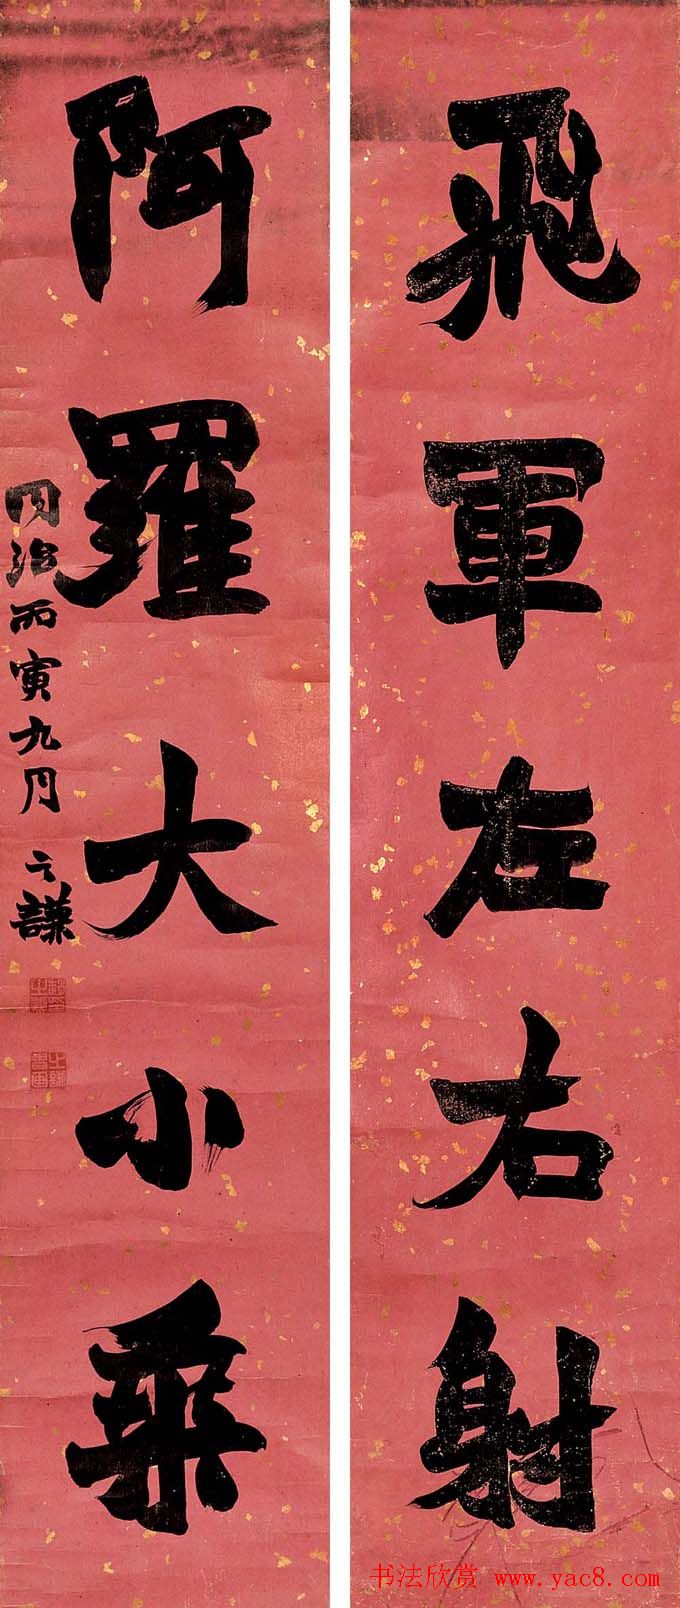 飛軍左右射
阿羅大小乘
同治丙寅九月 之謙
書法欣赏 www.yac8.com